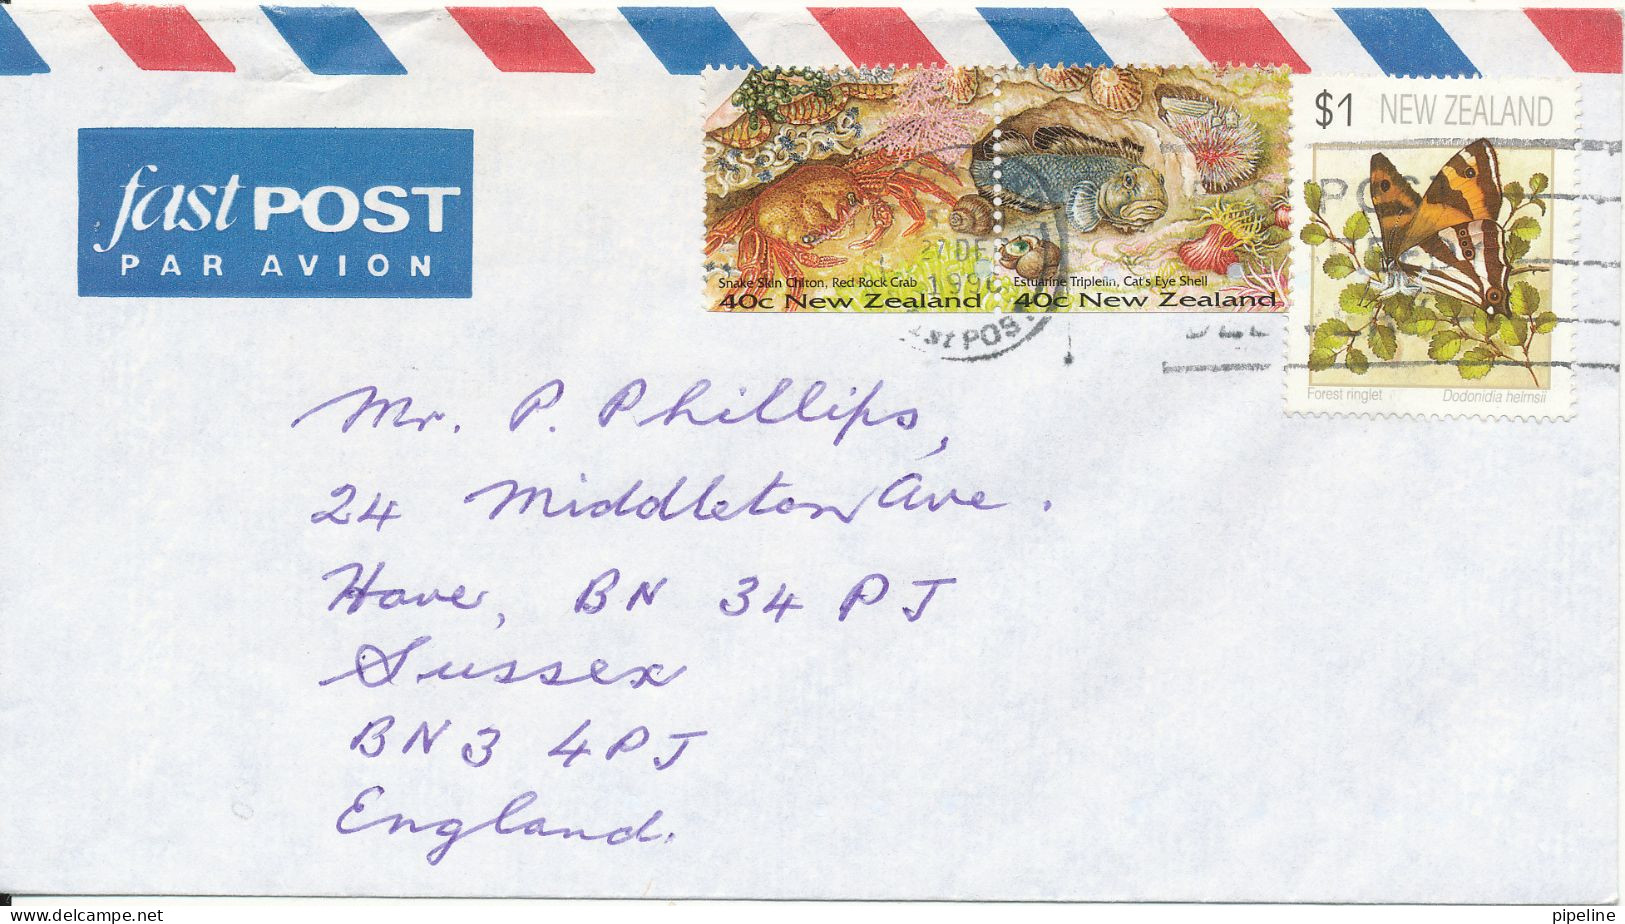 fast POST
PAR AVION
Snake Skin Chiton, Red Rock Crab
40c New Zealand
Estuarine Triplefin, Cat's Eye Shell
40c New Zealand
$1 NEW ZEALAND
Forest ringlet Dodonidia helmsii
27 DE
1996
st POS
POS
Mr. P. Phillips,
24 Middleton Ave.
Hove, BN 34 PJ
Sussex
BN3 4PJ
England.
delcampe.net
pipeline